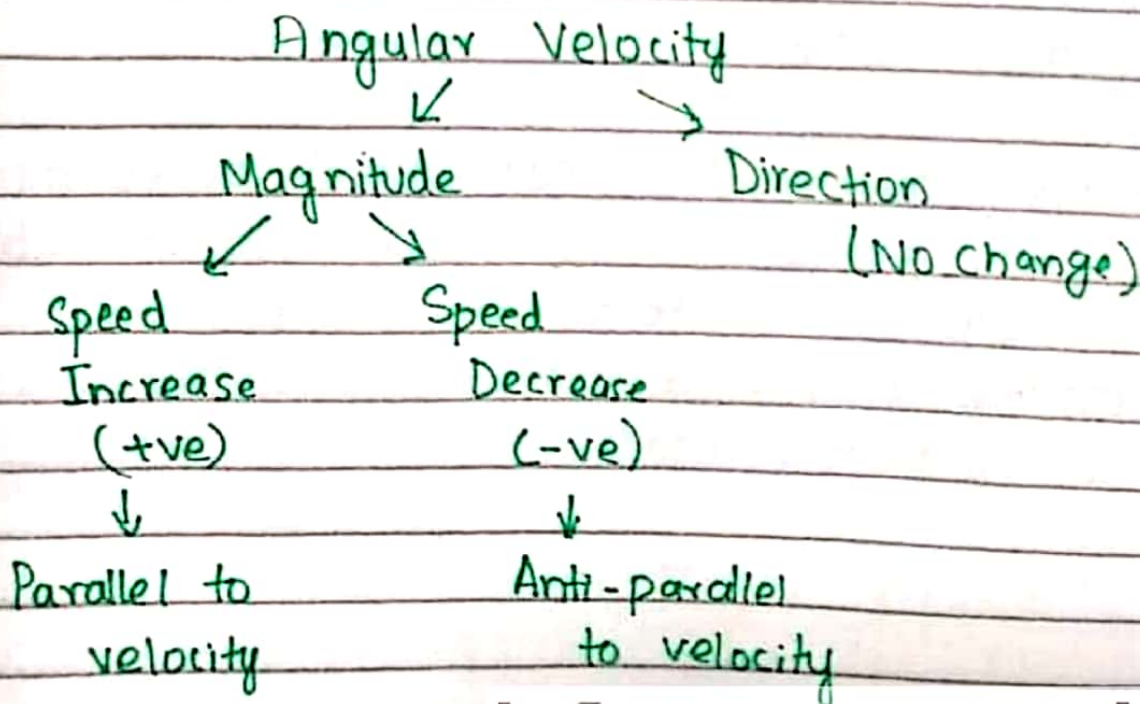 Angular Velocity
Magnitude
Direction
(No change)
Speed
Increase
(+ve)
Parallel to
velocity
Speed
Decrease
(-ve)
Anti-parallel
to velocity